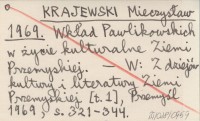 KRAJEWSKI Mieczysław
1969. Wkład Pawlikowskich
w życie kulturalne Ziemi
Przemyskiej. – W: Z dziejów
kultury i literatury Ziemi
Przemyskiej [t. 1], Przemyśl
1969, s. 321-344.